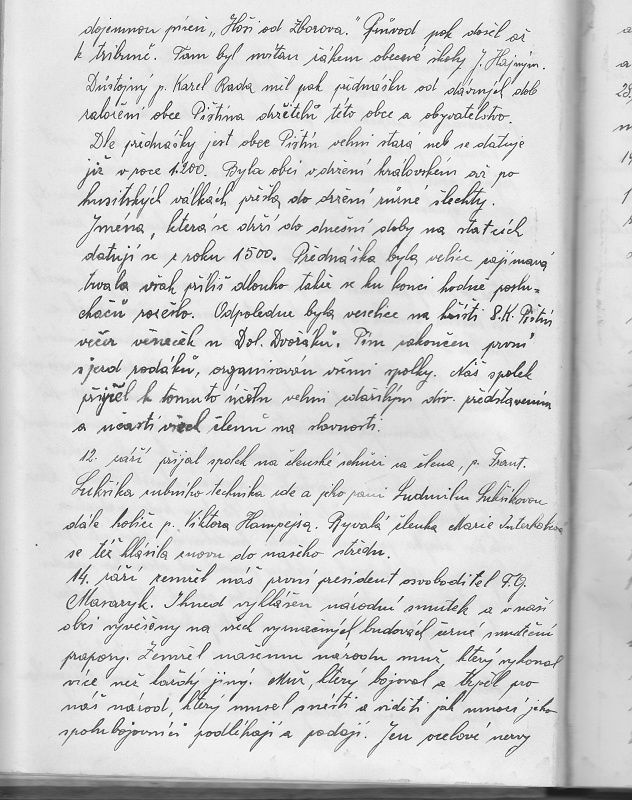 dojemnou píseň „Hoši od Zborova." Průvod pak došel až
k tribuně. Tam byl uvítán žákem obecné školy J. Hajným.
Důstojný p. Karel Rada měl pak přednášku od dávných dob
založení obce Pištína držitelů této obce a obyvatelstvo.
Dle přednášky jest obec Pištín velmi stará neb se datuje
již v roce 1200. Byla obcí v držení královském až po
husitských válkách přešla do držení různé šlechty.
Jména, která se drží do dnešní doby na statcích
datují se z roku 1500. Přednáška byla velice zajímavá
trvala však příliš dlouho takže se ku konci hodně poslu-
chačů rozešlo. Odpoledne byla veselice na hřišti S.K. Pištín
večer věneček u Dol. Dvořáků. Tím zakončen první
sjezd rodáků, organisován všemi spolky. Náš spolek
přispěl k tomuto účelu velmi zdařilým div. představením
a účastí všech členů na slavnosti.
12. září přijal spolek na členské schůzi za člena, p. Frant.
Lukšíka zubního technika zde a jeho paní Ludmilu Lukšíkovou
dále holiče p. Viktora Hampejsa. Bývalá členka Marie
se též hlásila znovu do našeho středu.
14. září zemřel náš první president osvoboditel T.G.
Masaryk. Ihned vyhlášen národní smutek a v naší
obci vyvěšeny na všech význačných budovách černé smuteční
prapory. Zemřel našemu národu muž, který vykonal
více než každý jiný. Muž, který bojoval a trpěl pro
náš národ, který musel snésti a viděti jak mnozí jeho
spolubojovníci podléhají a padají. Jen ocelové nervy